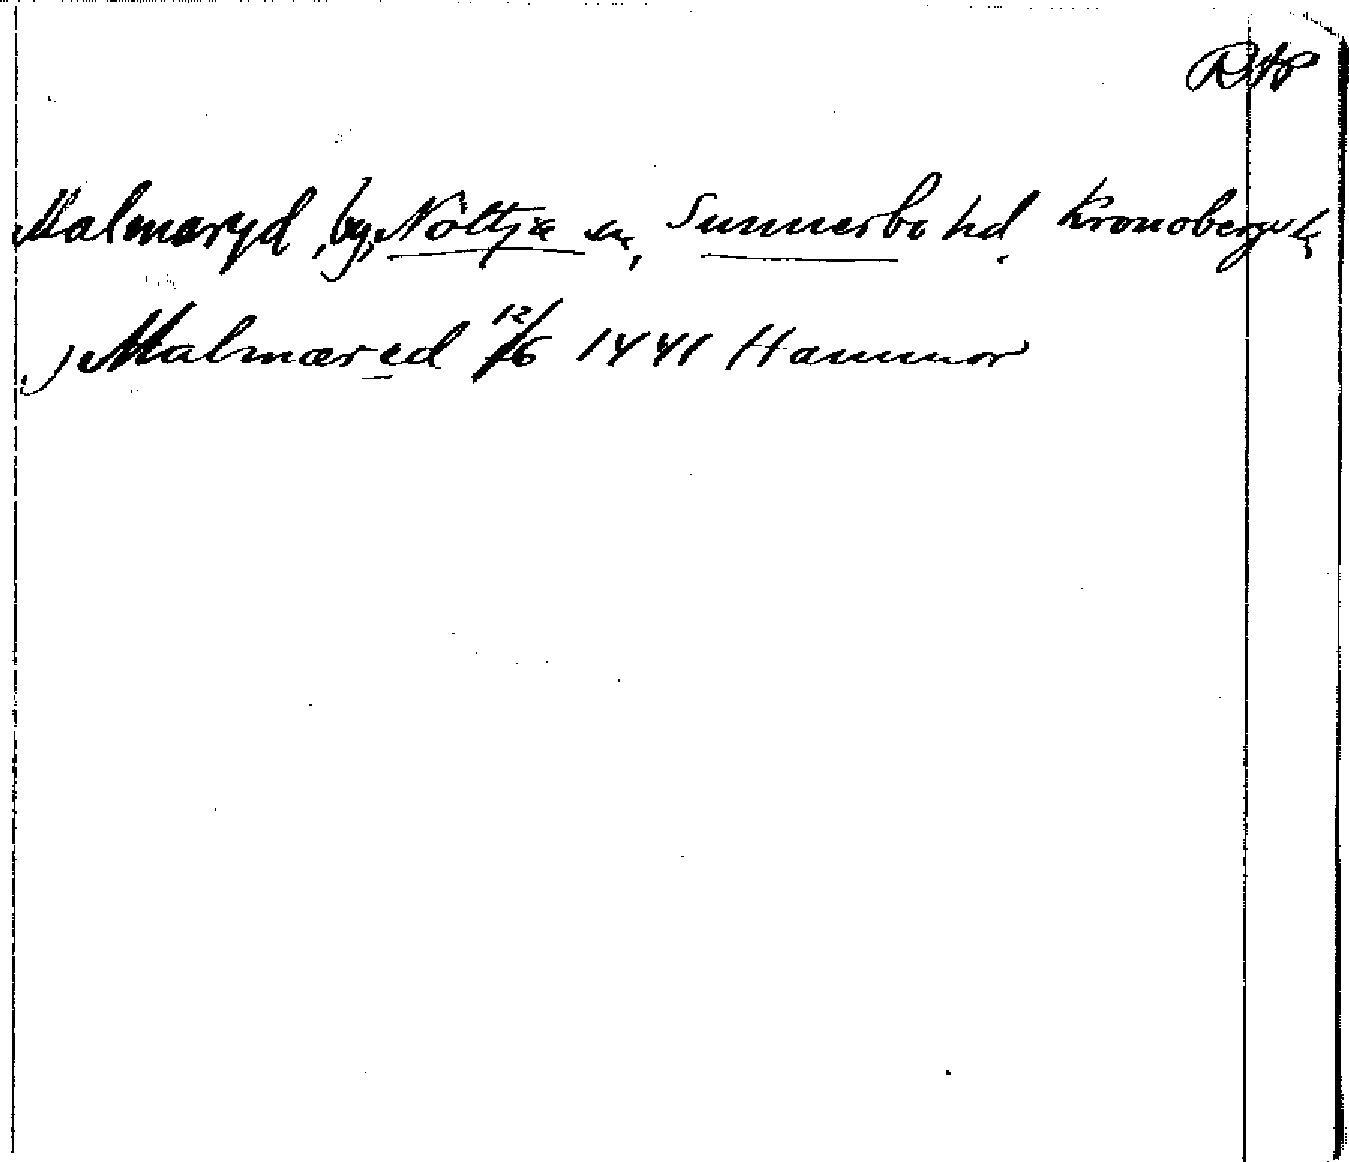 RAP
Malmaryd, by, Nöttja sn, Sunnerbo hd. Kronobergs l.
j Malmæred 12/6 1441 Hammor